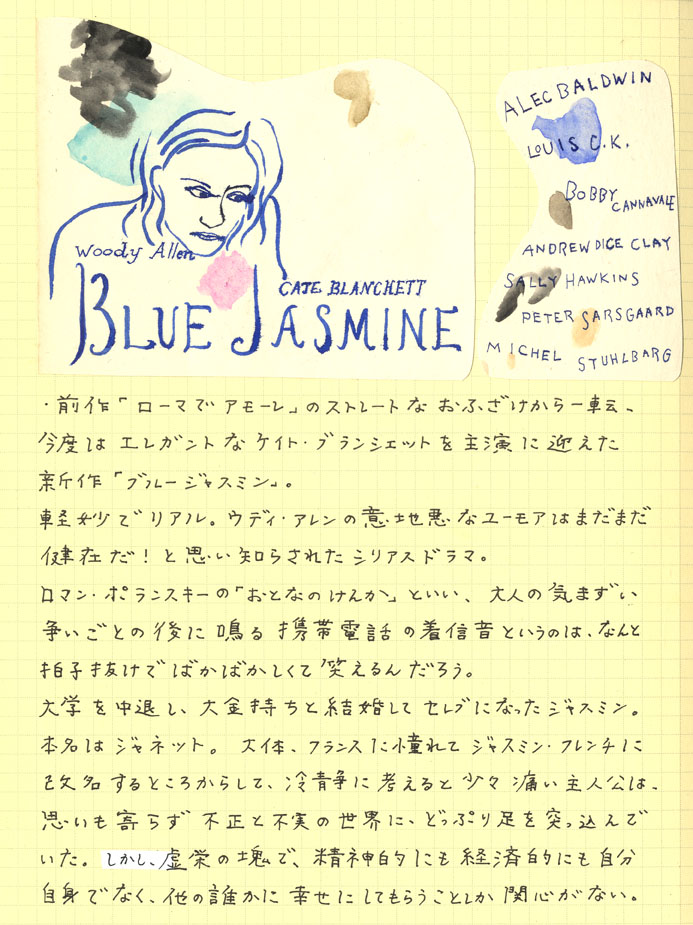 Woody Allen
CATE BLANCHETT
BLUE JASMINE
ALEC BALDWIN
LOUIS C.K.
BOBBY
CANNAVALE
ANDREW DICE CLAY
SALLY HAWKINS
PETER SARSGAARD
MICHEL STUHLBARG
・前作「ローマでアモーレ」のストレートなおふざけから一転、
今度はエレガントなケイト・ブランシェットを主演に迎えた
新作「ブルージャスミン」。
軽妙でリアル。ウディ・アレンの意地悪なユーモアはまだまだ
健在だ!と思い知らされたシリアスドラマ。
ロマン・ポランスキーの「おとなのけんか」といい、大人の気まずい
争いごとの後に鳴る携帯電話の着信音というのは、なんと
拍子抜けでばかばかしくて笑えるんだろう。
大学を中退し、大金持ちと結婚してセレブになったジャスミン。
本名はジャネット。大体、フランスに憧れてジャスミン・フレンチに
改名するところからして、冷静に考えると少々痛い主人公は、
思いも寄らず不正と不実の世界に、どっぷり足を突っ込んで
いた。しかし、虚栄の塊で、精神的にも経済的にも自分
自身でなく、他の誰かに幸せにしてもらうことしか関心がない。